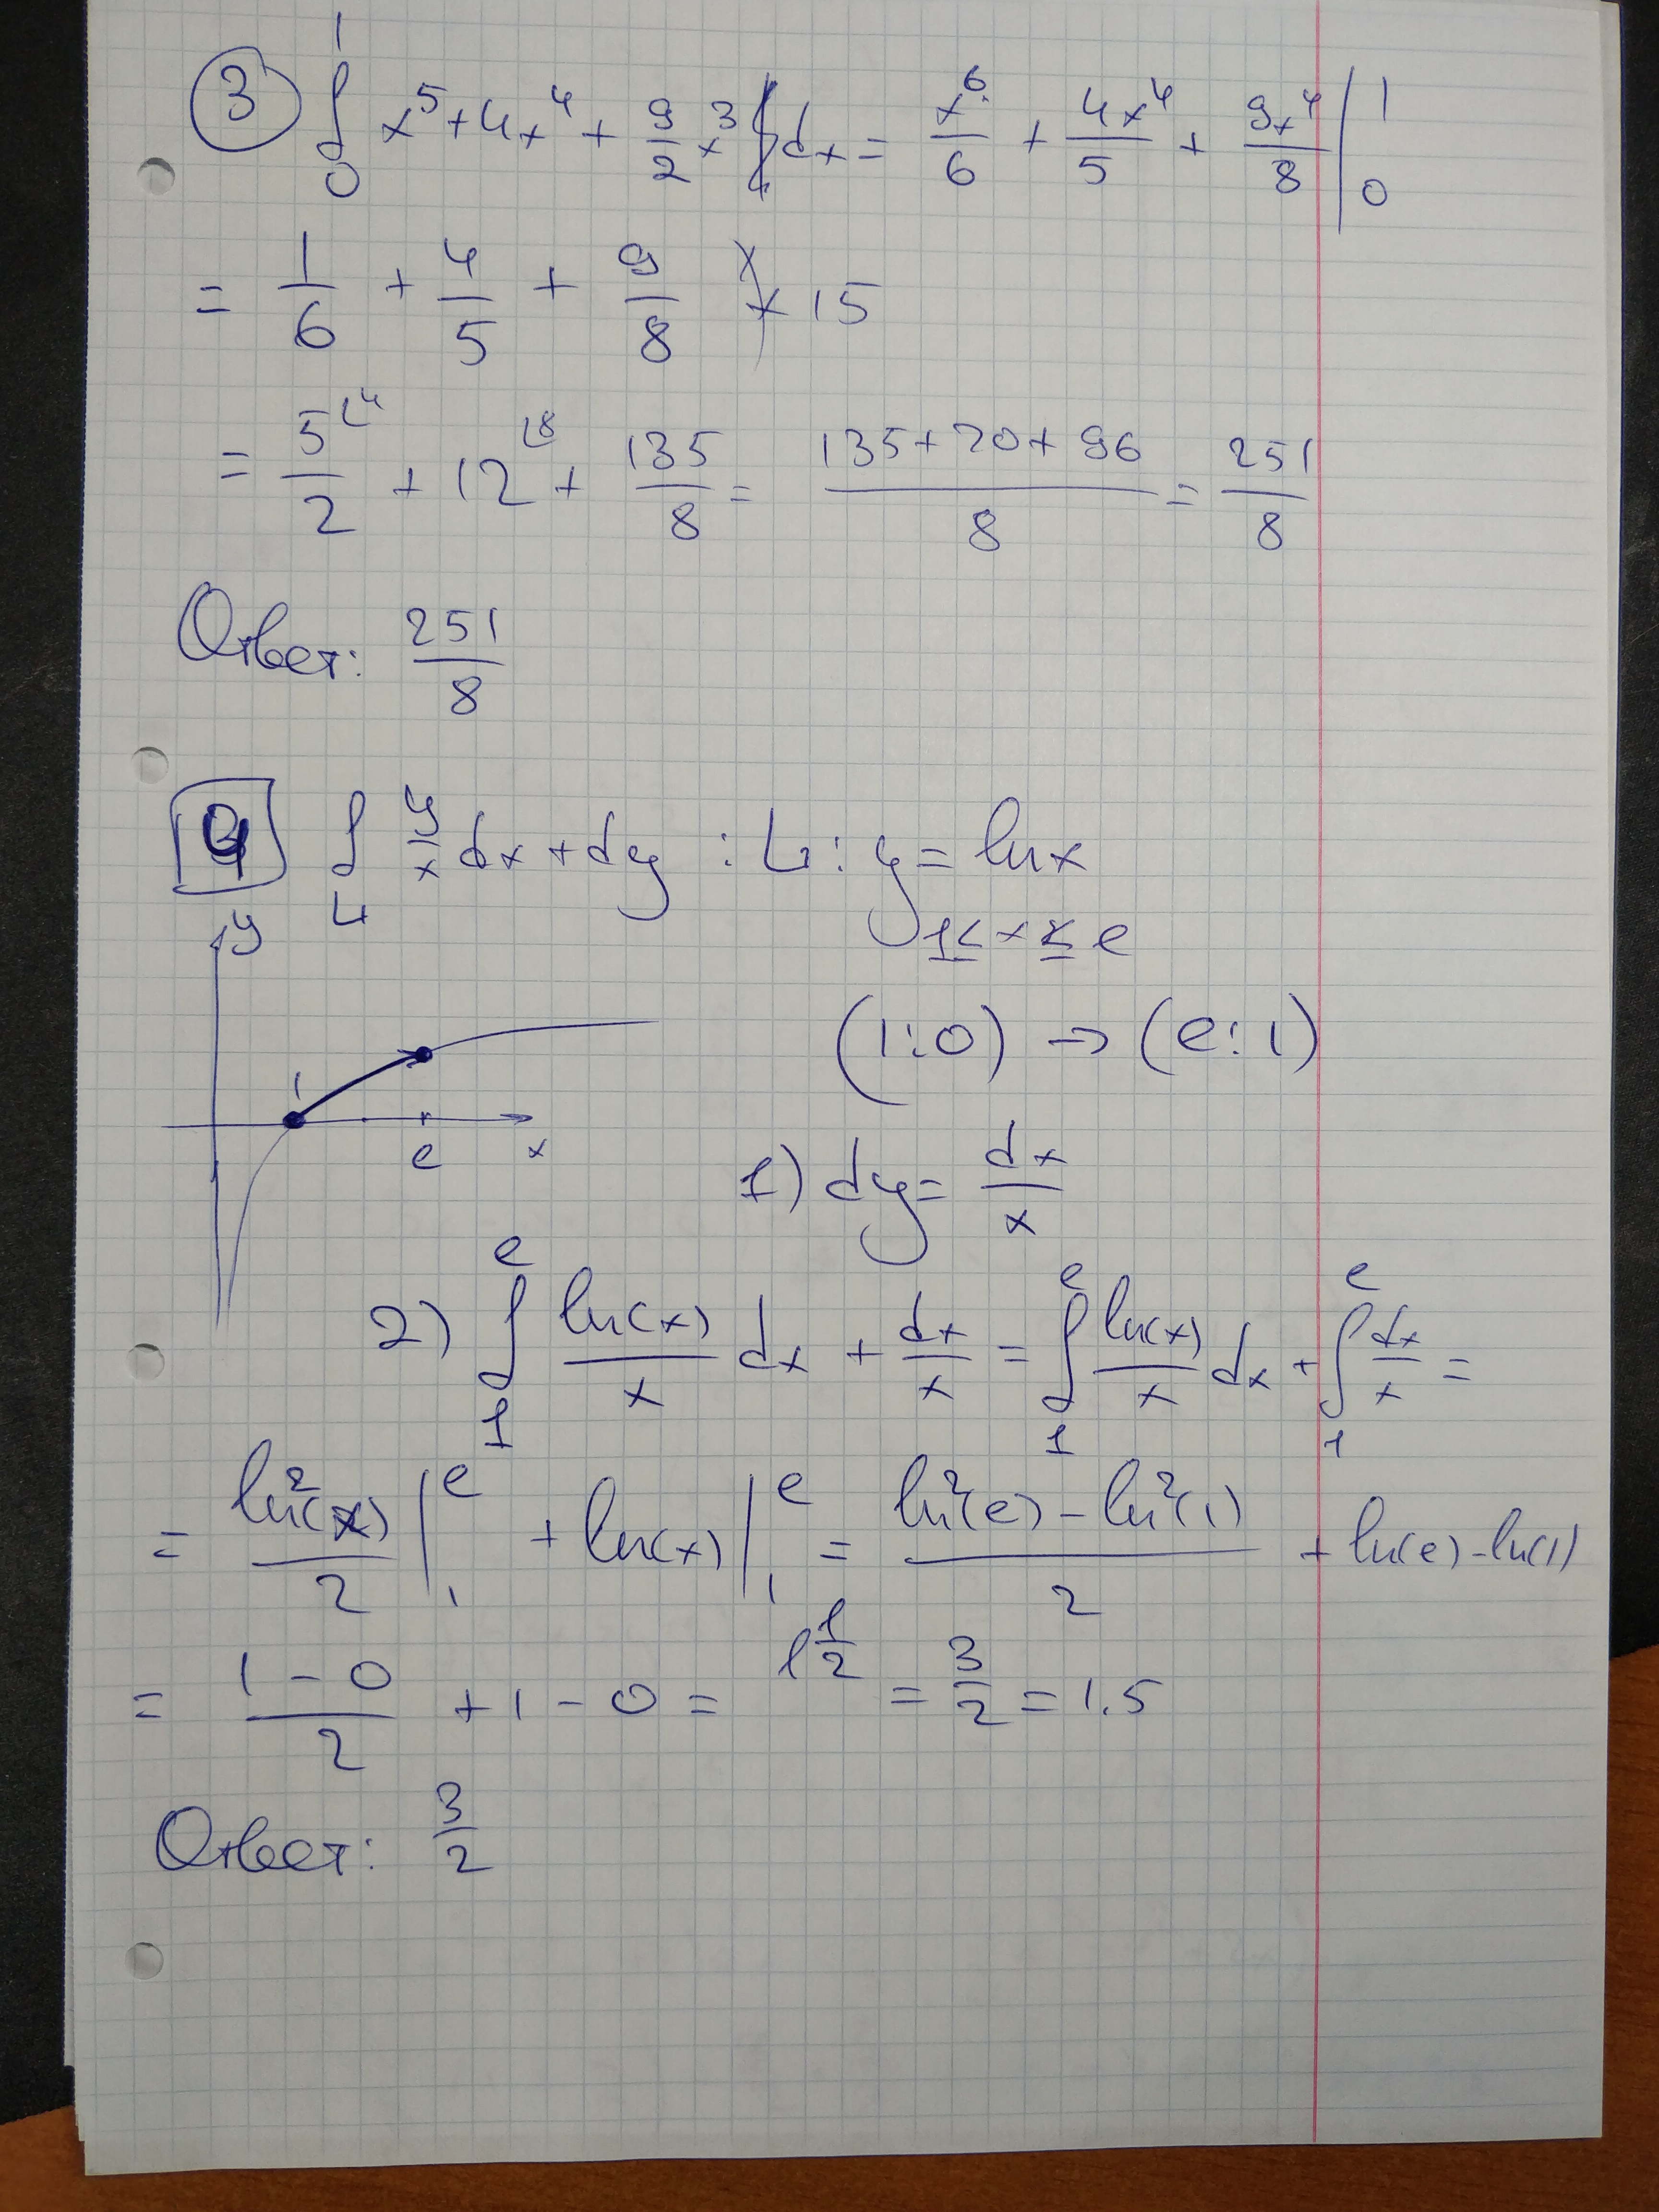 ③ ∫₀¹ x⁵ + 4x⁴ + 9/2 x³ dx = x⁶/6 + 4x⁴/5 + 9x⁴/8 |₀¹
= 1/6 + 4/5 + 9/8 × 15
= 5/2 ⌊4 + 12 ⌊8 + 135/8 = (135 + 20 + 96)/8 = 251/8
Ответ: 251/8
4 ∫_L y/x dx + dy : L : y = ln x
1 ≤ x ≤ e
y
(1:0) → (e:1)
1
e x
1) dy = dx/x
2) ∫₁ᵉ ln(x)/x dx + dx/x = ∫₁ᵉ ln(x)/x dx + ∫₁ᵉ dx/x =
= ln²(x)/2 |₁ᵉ + ln(x) |₁ᵉ = (ln²(e) - ln²(1))/2 + ln(e) - ln(1)
= (1 - 0)/2 + 1 - 0 = 1 1/2 = 3/2 = 1.5
Ответ: 3/2